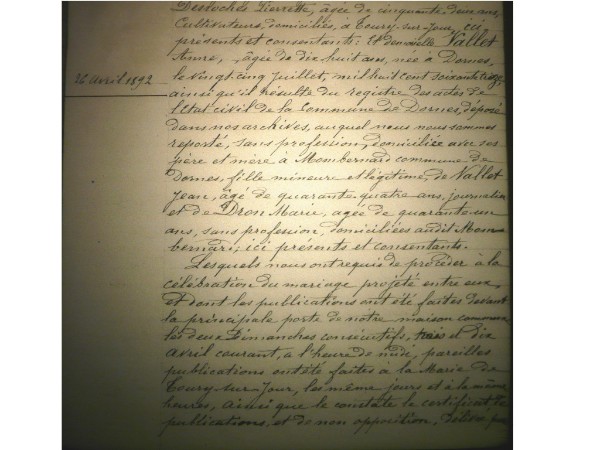 Desloches Pierrette, agée de cinquante deux ans,
Cultivateurs, domiciliés, à Toury-sur-Jour, ici
présents et consentants: Et demoiselle Vallet
Anne, âgée de dix huit ans, née à Dornes,
26 avril 1892
le vingt cinq Juillet, mil huit cent soixante treize
ainsi qu'il résulte du registre des actes de
l'Etat civil de la Commune de Dornes, déposé
dans nos archives, auquel nous nous sommes
reporté, sans profession, domiciliée avec ses
père et mère à Montbernard commune de
Dornes, fille mineure et légitime, de Vallet
Jean, âgé de quarante quatre ans, journalier
et de Dron Marie, agée de quarante un
ans, sans profession, domiciliées audit Mon
bernard; ici présents et consentants.
Lesquels nous ont requis de procéder à la
célébration du mariage projeté entre eux,
et dont les publications ont été faites devant
la principale porte de notre maison commune
les deux Dimanches consécutifs, trois et dix
avril courant, à l'heure de midi, pareilles
publications ont été faites à la Mairie de
Toury-sur-Jour, les même jours et à la même
heures, ainsi que le constate le certificat de
publications, et de non opposition, délivré par